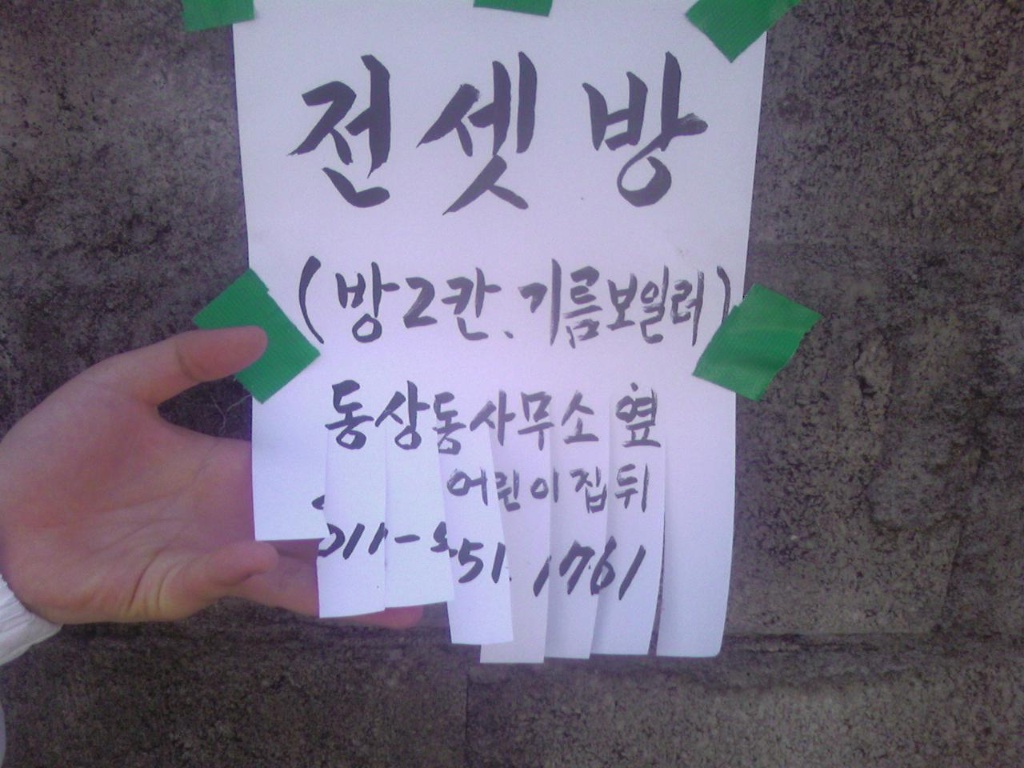 전셋방
(방2칸. 기름보일러)
동상동사무소 옆
어린이집뒤
011- 51 1761